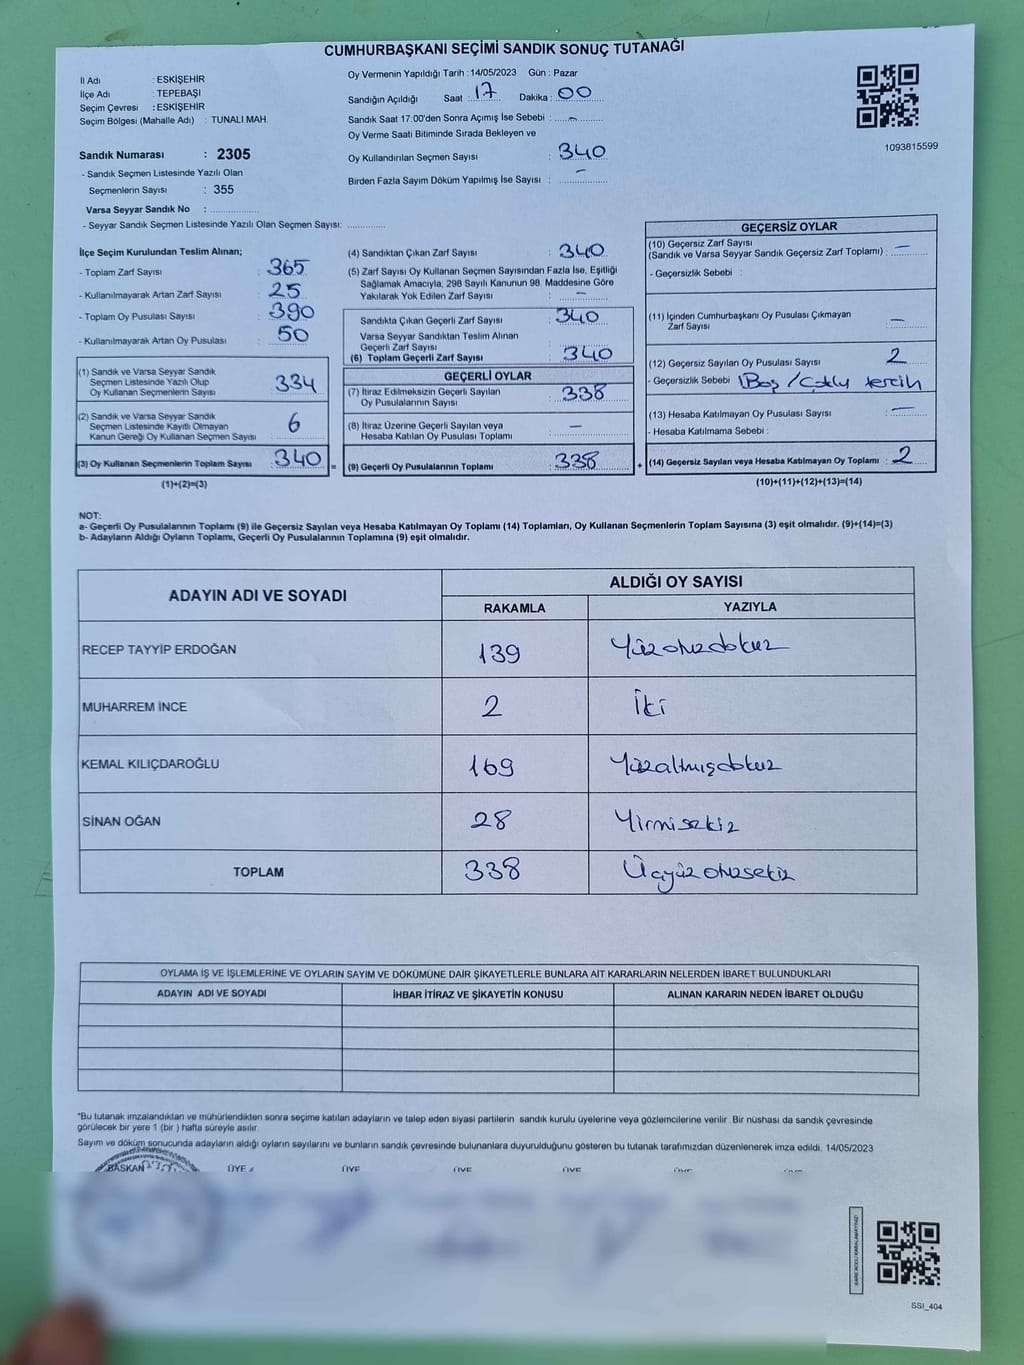 CUMHURBAŞKANI SEÇİMİ SANDIK SONUÇ TUTANAĞI
İl Adı : ESKİŞEHİR
İlçe Adı : TEPEBAŞI
Seçim Çevresi : ESKİŞEHİR
Seçim Bölgesi (Mahalle Adı) : TUNALI MAH.
Sandık Numarası : 2305
- Sandık Seçmen Listesinde Yazılı Olan
Seçmenlerin Sayısı : 355
Varsa Seyyar Sandık No : ................
- Seyyar Sandık Seçmen Listesinde Yazılı Olan Seçmen Sayısı: .............
Oy Vermenin Yapıldığı Tarih : 14/05/2023 Gün : Pazar
Sandığın Açıldığı Saat : 17 Dakika : 00
Sandık Saat 17:00'den Sonra Açımış İse Sebebi : -
Oy Verme Saati Bitiminde Sırada Bekleyen ve
Oy Kullandırılan Seçmen Sayısı : 340
Birden Fazla Sayım Döküm Yapılmış İse Sayısı : -
1093815599
İlçe Seçim Kurulundan Teslim Alınan;
- Toplam Zarf Sayısı : 365
- Kullanılmayarak Artan Zarf Sayısı : 25
- Toplam Oy Pusulası Sayısı : 390
- Kullanılmayarak Artan Oy Pusulası : 50
(1) Sandık ve Varsa Seyyar Sandık
Seçmen Listesinde Yazılı Olup
Oy Kullanan Seçmenlerin Sayısı : 334
(2) Sandık ve Varsa Seyyar Sandık
Seçmen Listesinde Kayıtlı Olmayan
Kanun Gereği Oy Kullanan Seçmen Sayısı : 6
(3) Oy Kullanan Seçmenlerin Toplam Sayısı : 340 =
(1)+(2)=(3)
(4) Sandıktan Çıkan Zarf Sayısı : 340
(5) Zarf Sayısı Oy Kullanan Seçmen Sayısından Fazla İse, Eşitliği
Sağlamak Amacıyla; 298 Sayılı Kanunun 98. Maddesine Göre
Yakılarak Yok Edilen Zarf Sayısı : -
Sandıkta Çıkan Geçerli Zarf Sayısı : 340
Varsa Seyyar Sandıktan Teslim Alınan
Geçerli Zarf Sayısı :
(6) Toplam Geçerli Zarf Sayısı : 340
GEÇERLİ OYLAR
(7) İtiraz Edilmeksizin Geçerli Sayılan
Oy Pusulalarının Sayısı : 338
(8) İtiraz Üzerine Geçerli Sayılan veya
Hesaba Katılan Oy Pusulası Toplamı : -
(9) Geçerli Oy Pusulalarının Toplamı : 338 +
GEÇERSİZ OYLAR
(10) Geçersiz Zarf Sayısı
(Sandık ve Varsa Seyyar Sandık Geçersiz Zarf Toplamı) : -
- Geçersizlik Sebebi :
(11) İçinden Cumhurbaşkanı Oy Pusulası Çıkmayan
Zarf Sayısı : -
(12) Geçersiz Sayılan Oy Pusulası Sayısı : 2
- Geçersizlik Sebebi : 1Boş / Çoklu tercih
(13) Hesaba Katılmayan Oy Pusulası Sayısı : -
- Hesaba Katılmama Sebebi :
(14) Geçersiz Sayılan veya Hesaba Katılmayan Oy Toplamı : 2
(10)+(11)+(12)+(13)=(14)
NOT:
a- Geçerli Oy Pusulalarının Toplamı (9) ile Geçersiz Sayılan veya Hesaba Katılmayan Oy Toplamı (14) Toplamları, Oy Kullanan Seçmenlerin Toplam Sayısına (3) eşit olmalıdır. (9)+(14)=(3)
b- Adayların Aldığı Oyların Toplamı, Geçerli Oy Pusulalarının Toplamına (9) eşit olmalıdır.
ADAYIN ADI VE SOYADI
ALDIĞI OY SAYISI
RAKAMLA YAZIYLA
RECEP TAYYİP ERDOĞAN 139 Yüzotuzdokuz
MUHARREM İNCE 2 İki
KEMAL KILIÇDAROĞLU 169 Yüzaltmışdokuz
SİNAN OĞAN 28 Yirmisekiz
TOPLAM 338 Üçyüzotuzsekiz
OYLAMA İŞ VE İŞLEMLERİNE VE OYLARIN SAYIM VE DÖKÜMÜNE DAİR ŞİKAYETLERLE BUNLARA AİT KARARLARIN NELERDEN İBARET BULUNDUKLARI
ADAYIN ADI VE SOYADI İHBAR İTİRAZ VE ŞİKAYETİN KONUSU ALINAN KARARIN NEDEN İBARET OLDUĞU
*Bu tutanak imzalandıktan ve mühürlendikten sonra seçime katılan adayların ve talep eden siyasi partilerin sandık kurulu üyelerine veya gözlemcilerine verilir. Bir nüshası da sandık çevresinde
görülecek bir yere 1 (bir ) hafta süreyle asılır.
Sayım ve döküm sonucunda adayların aldığı oyların sayılarını ve bunların sandık çevresinde bulunanlara duyurulduğunu gösteren bu tutanak tarafımızdan düzenlenerek imza edildi. 14/05/2023
BAŞKAN ÜYE ÜYE ÜYE ÜYE ÜYE
SSI_404